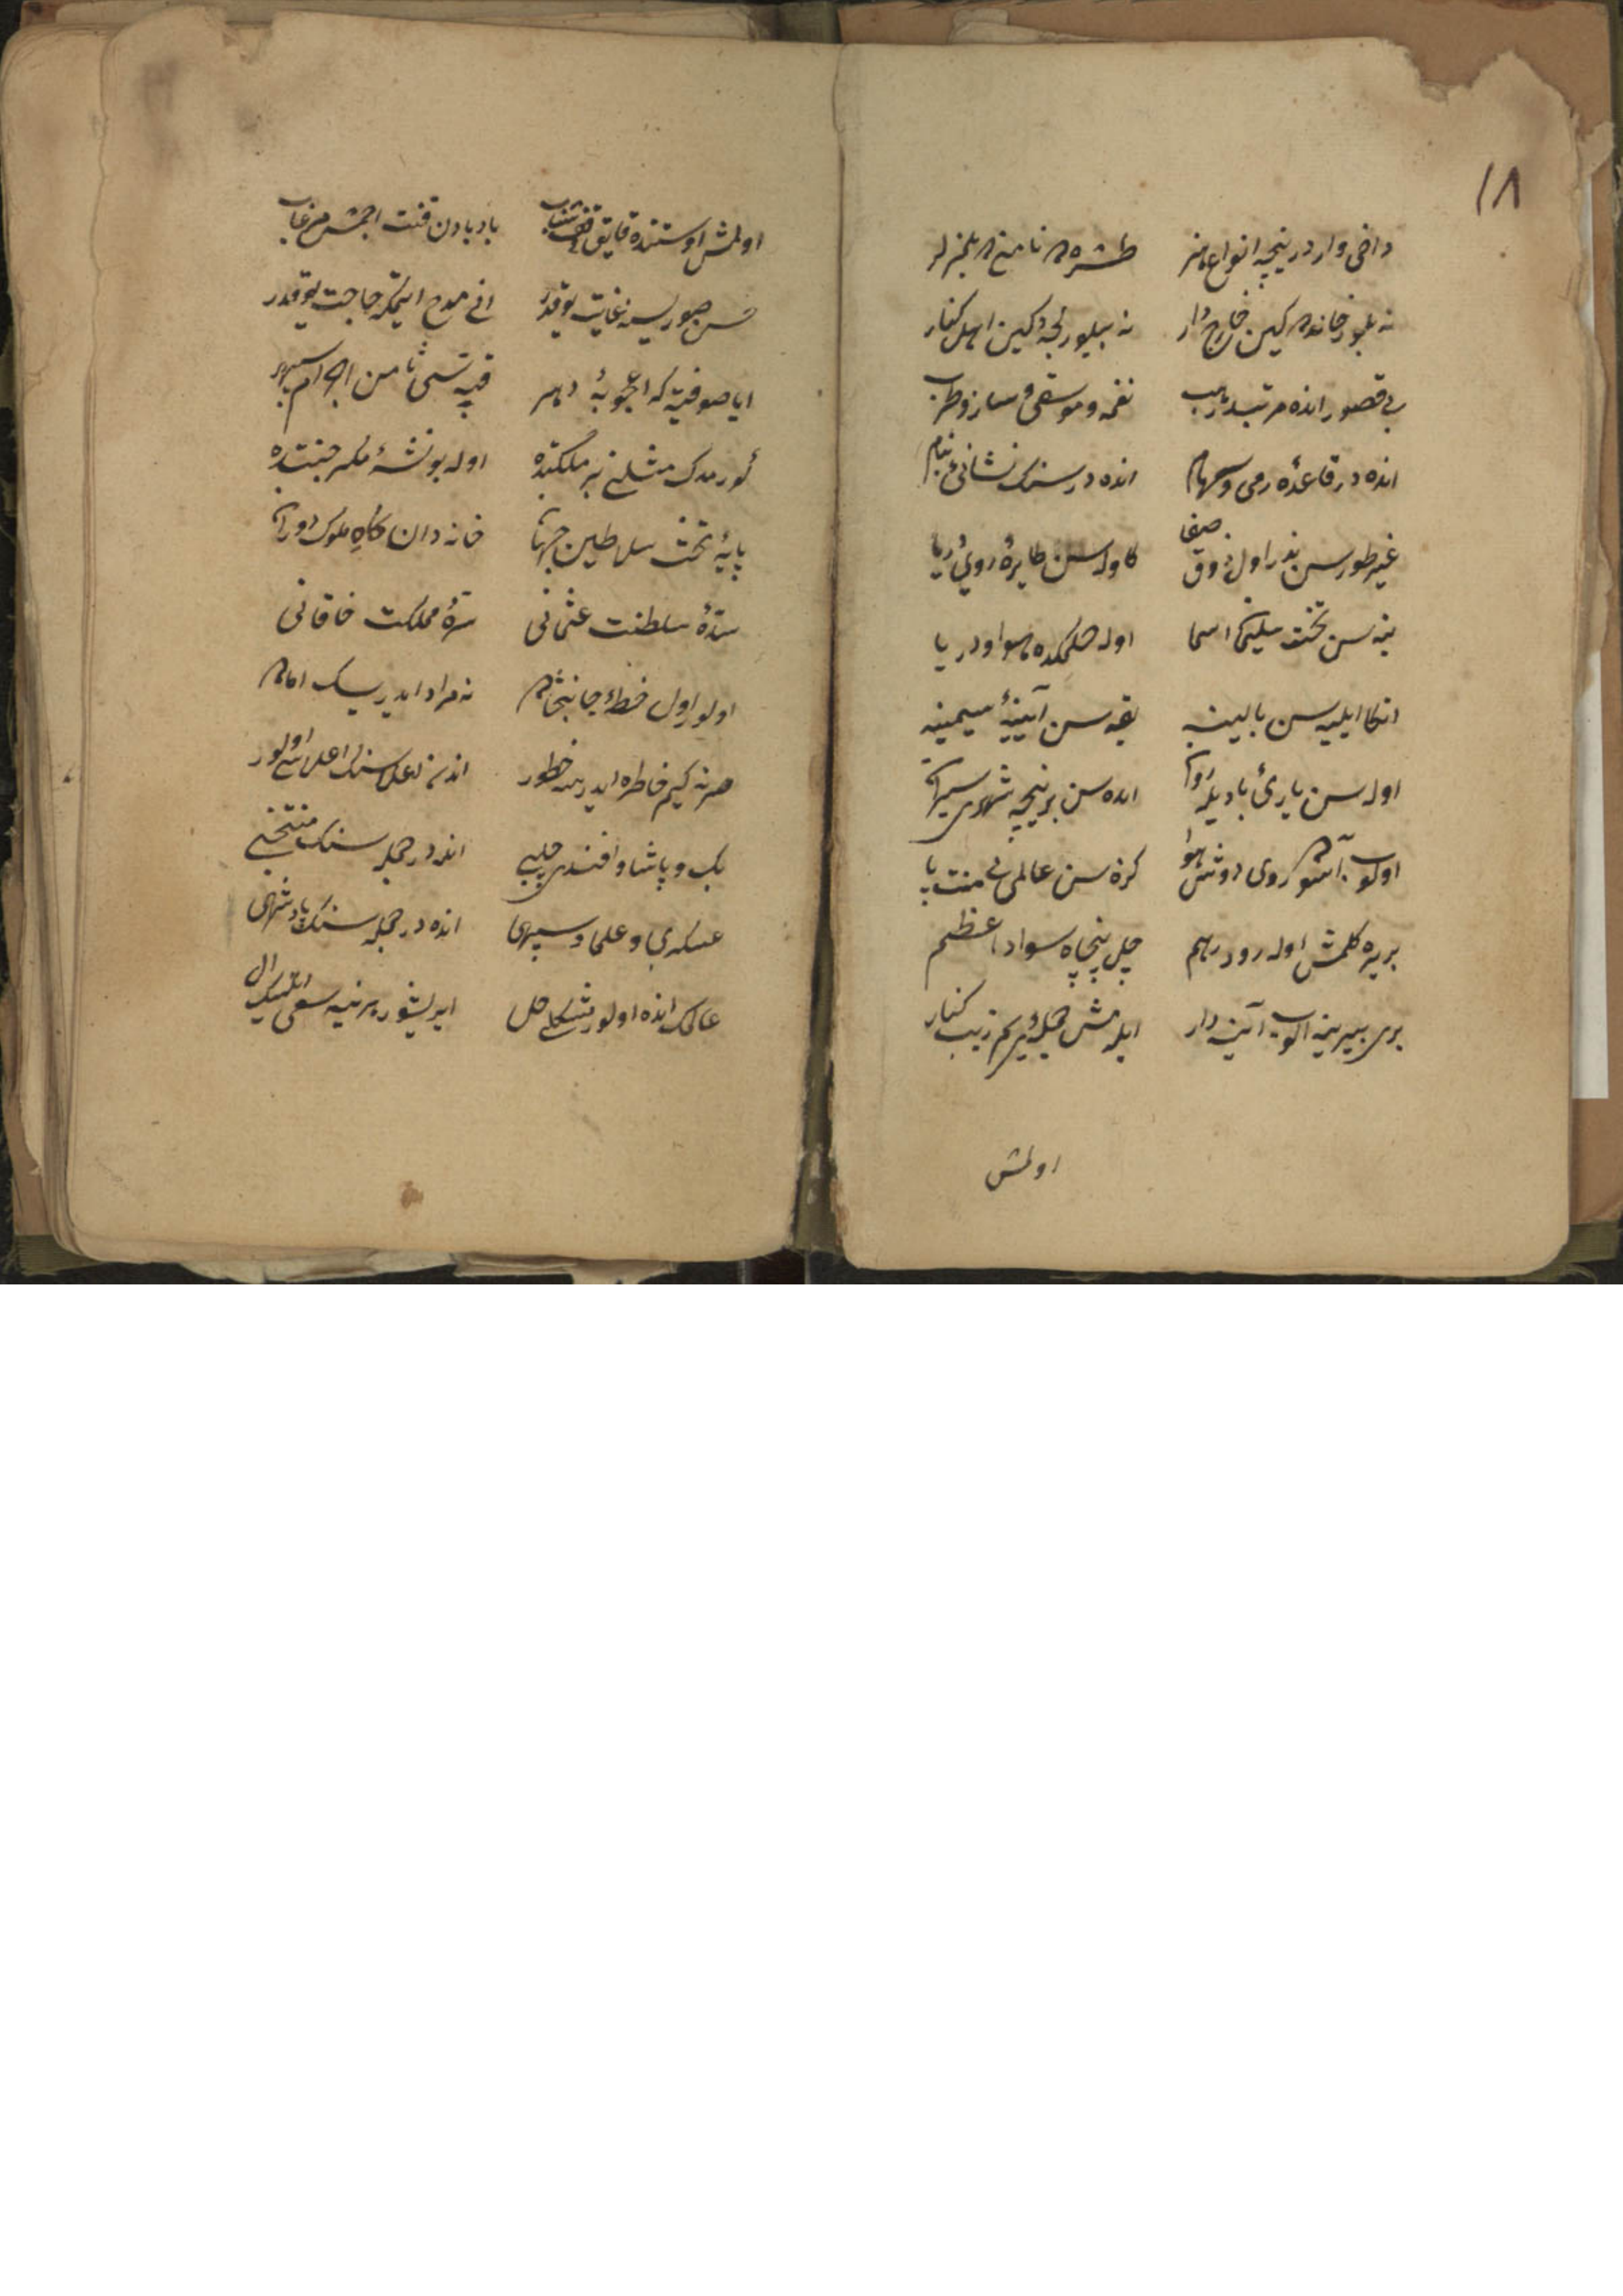 ١٨
داخی وار در نیچه انواع هنر طشره ده نامنی ده بلمزلر
نه بلور خانده کین خارج دار نه بیلور لجه دکین اهل کنار
بی قصور انده مرتبدر هب نغمه و موسقی و ساز و طرب
انده در قاعدهٔ رمی و سهام انده در سنک نشانی بنام
غیر طورسن بندر اول ذوق صفا کاوله سن طایرهٔ روی دریا
بنه سن تخت سلیمان اسا اوله حکمکده هوا و دریا
اتکا ایلیه سن بالینه بقه سن آیینهٔ سیمینه
اوله سن یاریٔ بادیله روان ایده سن بر نیچه شهری سیران
اولوب آسوده روی دوش هوا کزه سن عالمی بی منت پا
بریره کلمش اوله رودر بهم چل پنجاه سواد اعظم
بری بیرینه اولوب آینه دار ایلمش جمله یی پر زیب کنار
اولمش
اولمش اوستنده قایق بادبادن قنت اچمش مرغاب
حسن صوریسنه غایت یوقدر انی مدح ایتمکه حاجت یوقدر
ایا صوفیه که اعجوبهٔ دهر قبه سی ثامن اجرام سپهر
کورمدک مثلنی بر ملکتده اوله بو نشئه مکر جنتده
پایهٔ تخت سلاطین جهان خاندان کاه ملوک دوران
سدهٔ سلطنت عثمانی سرهٔ مملکت خاقانی
اولور اول خطهٔ جانبخشده نه مراد ایدر یسک اماده
هر نه کیم خاطره ایدرسه خطور اندن اعلا سنک اعلاسی اولور
بک و پاشا و افندی چلبی انده در جمله سنک منتخبی
عسکری و علما و سپهی انده در جمله سنک پادشهی
عالمک انده اولور مشکلی حل ایریشور هر نیه سعی ایتسک ال